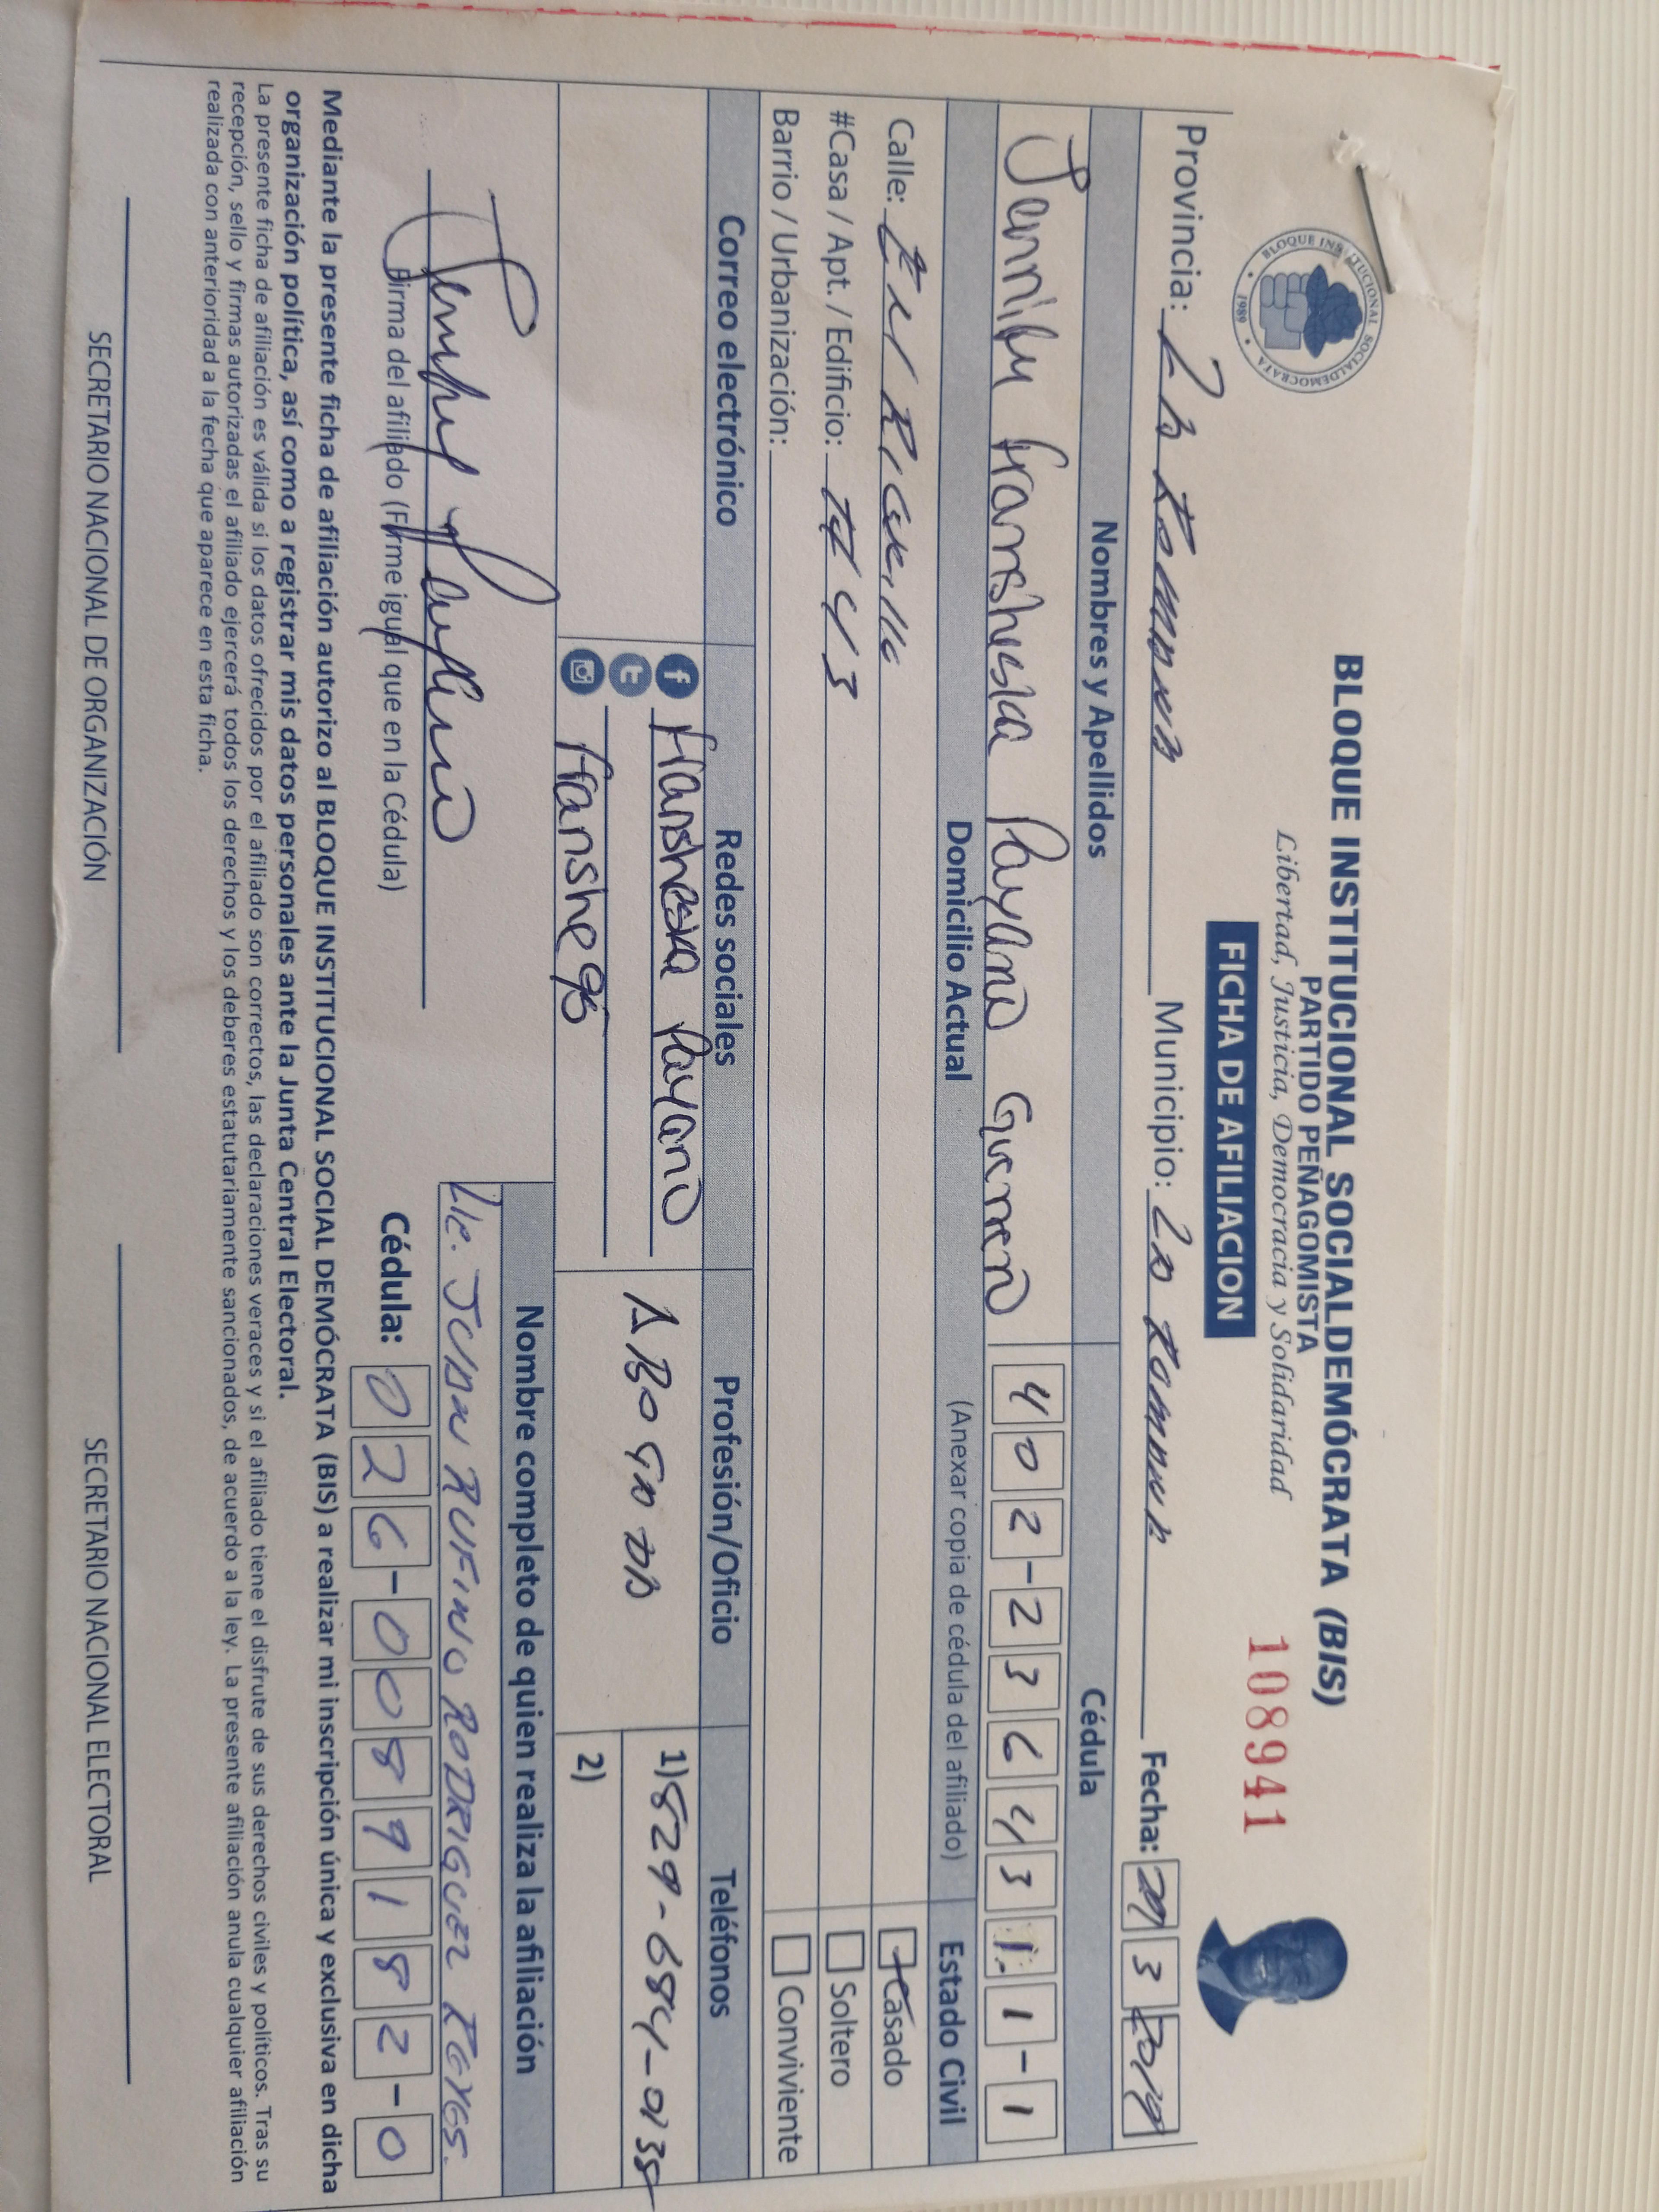 BLOQUE INSTITUCIONAL SOCIALDEMÓCRATA (BIS)
PARTIDO PEÑAGOMISTA
Libertad, Justicia, Democracia y Solidaridad
108941
FICHA DE AFILIACION
BLOQUE INSTITUCIONAL SOCIALDEMOCRATA
1989
Provincia: La Romana Municipio: La Romana Fecha: 29 3 2019
Nombres y Apellidos Cédula
Jennifer fransheska Payano Guerrero 402-2364311-1
Domicilio Actual (Anexar copia de cédula del afiliado) Estado Civil
Calle: Casado
#Casa / Apt. / Edificio: # 43 Soltero
Barrio / Urbanización: Conviviente
Correo electrónico Redes sociales Profesión/Oficio Teléfonos
Fransheska Payano ABOGADA 1) 829-684-0135
Franshe95 2)
Nombre completo de quien realiza la afiliación
Lic. JUAN RUFINO RODRIGUEZ REYES.
Firma del afiliado (Firme igual que en la Cédula) Cédula: 026-0089182-0
Mediante la presente ficha de afiliación autorizo al BLOQUE INSTITUCIONAL SOCIAL DEMÓCRATA (BIS) a realizar mi inscripción única y exclusiva en dicha
organización política, así como a registrar mis datos personales ante la Junta Central Electoral.
La presente ficha de afiliación es válida si los datos ofrecidos por el afiliado son correctos, las declaraciones veraces y si el afiliado tiene el disfrute de sus derechos civiles y políticos. Tras su
recepción, sello y firmas autorizadas el afiliado ejercerá todos los derechos y los deberes estatutariamente sancionados, de acuerdo a la ley. La presente afiliación anula cualquier afiliación
realizada con anterioridad a la fecha que aparece en esta ficha.
SECRETARIO NACIONAL DE ORGANIZACIÓN SECRETARIO NACIONAL ELECTORAL